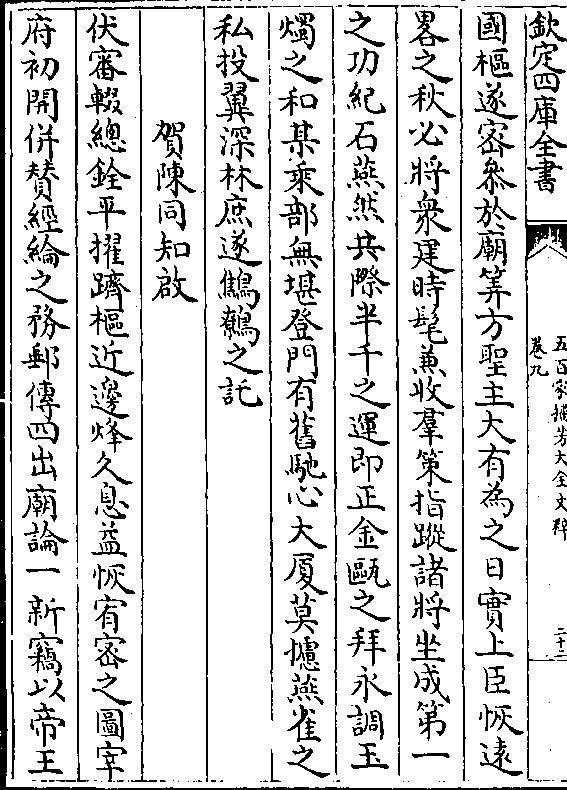 欽定四庫全書
五百家播芳大全文粹
卷九
二十三
國樞遂密叅於廟筭方聖主大有為之日實上臣恢逺
畧之秋必將衆建時髦兼收羣策指蹤諸將坐成第一
之功紀石燕然共際半千之運即正金甌之拜永調玉
燭之和某乘部無堪登門有舊馳心大厦莫攄燕雀之
私投翼深林庶遂鷦鷯之託
賀陳同知啟
伏審輟總銓平擢躋樞近邊烽久息益恢宥密之圖宰
府初開併賛經綸之務郵傳四出廟論一新竊以帝王